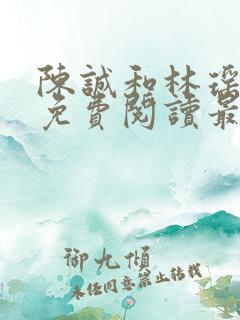 陳誠和林瑤
免費閱讀最
御九傾
未經同意禁止轉載